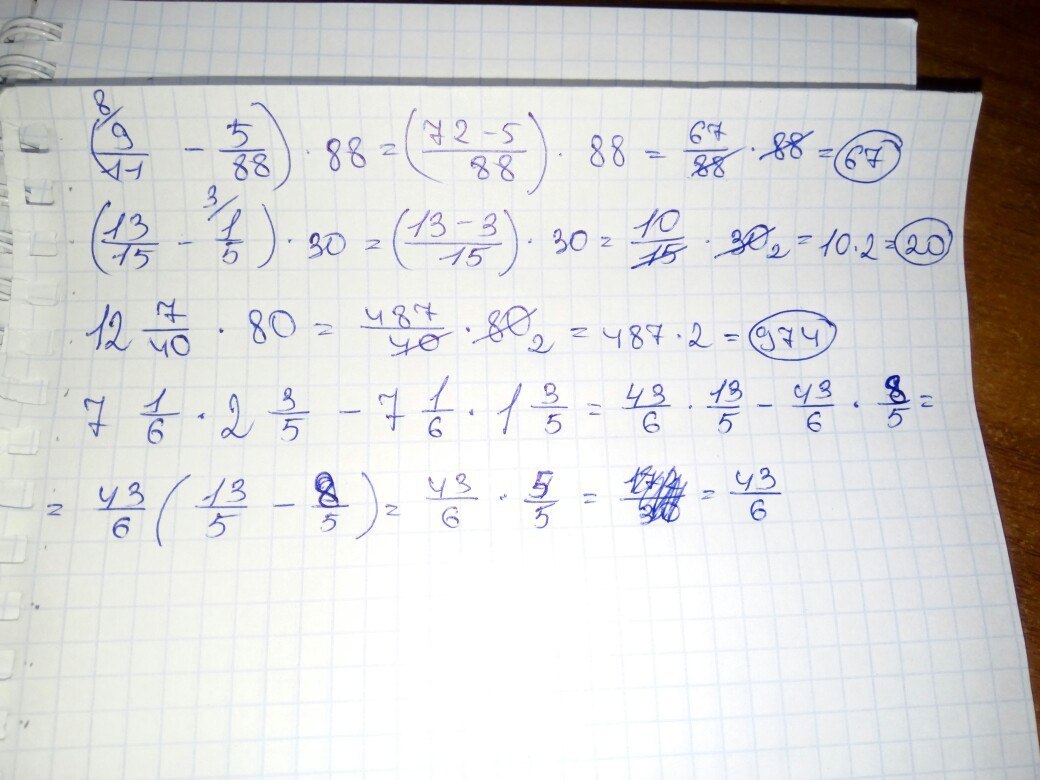 (⁸/ 9/11 − 5/88) · 88 = ((72 − 5)/88) · 88 = 67/88 · 88 = 67
(13/15 − ³/ 1/5) · 30 = ((13 − 3)/15) · 30 = 10/15 · 30 2 = 10 · 2 = 20
12 7/40 · 80 = 487/40 · 80 2 = 487 · 2 = 974
7 1/6 · 2 3/5 − 7 1/6 · 1 3/5 = 43/6 · 13/5 − 43/6 · 8/5 =
= 43/6 (13/5 − 8/5) = 43/6 · 5/5 = = 43/6